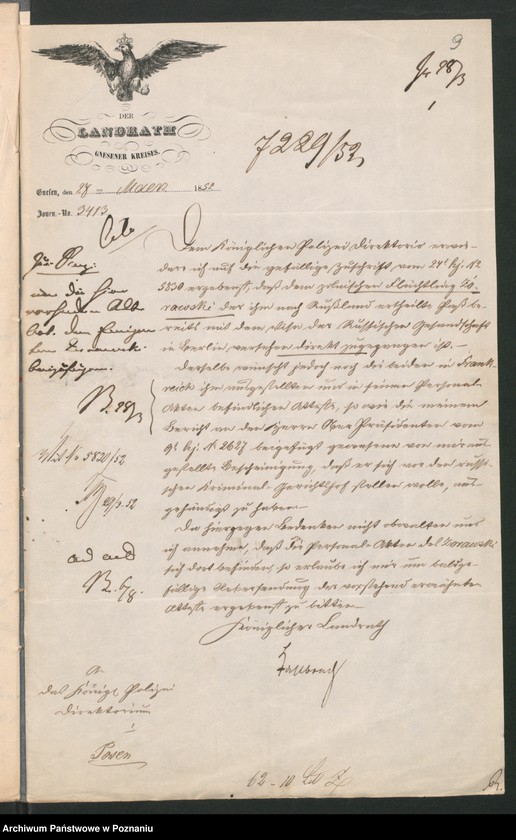 9
pr 28/3
1
DER
LANDRATH
GNESENER KREISES.
7229/52
Gnesen, den 27 ten Maerz 1852
Journ.-No. 3413
Dem Königlichen Polizei Direktorio erwie-
dere ich auf die gefällige Zuschrift vom 24t hj. No
5830 ergebenst, daß dem polnischen Flüchtling Zo-
rawski der ihm nach Rußland ertheilte Paß be-
reits mit dem Visa der Russischen Gesandschaft
in Berlin versehen direkt zugegangen ist. –
Derselbe wünscht jedoch noch die beiden in Frank-
reich ihm ausgestellten und in seinen Personal
Akten befindlichen Atteste, so wie die meinem
Bericht an den Herrn Ober Präsidenten vom
9t hj. No 2627 beigefügt gewesene von mir aus-
gestellte Bescheinigung, daß er sich vor den russi-
schen Kriminal-Gerichtshof stellen wolle, aus-
gehändigt zu haben.
Da hiergegen Bedenken nicht obwalten und
ich annehme, daß die Personal-Akten des Zorawski
sich dort befinden, so erlaube ich mir um baldge-
fällige Uebersendung der vorstehend erwähnten
Atteste ergebenst zu bitten.
Königlicher Landrath
um die hier
vorhandenen Atte
28/3
5820/52
29/3.52
ad acta
6/8.
An
das Königl Polizei
Direktorium
Posen
62 - 10
Archiwum Państwowe w Poznaniu